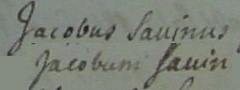 Jacobus Savinus
Jacobum Savin